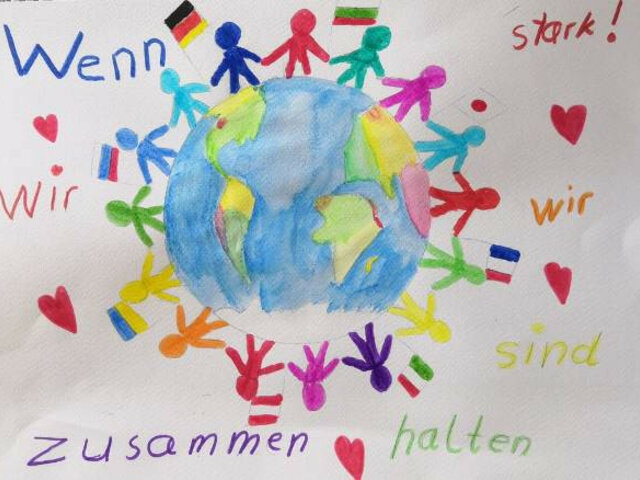 Wenn
Wir
zusammen halten
sind
wir
stark!